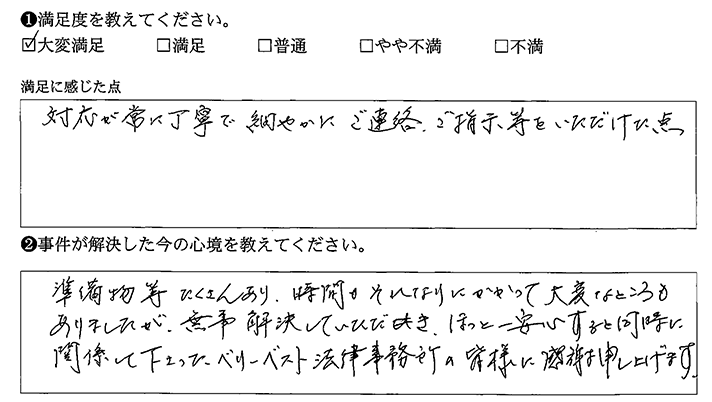 ❶満足度を教えてください。
☑大変満足 □満足 □普通 □やや不満 □不満
満足に感じた点
対応が常に丁寧で細やかにご連絡、ご指示等をいただけた点
❷事件が解決した今の心境を教えてください。
準備物等たくさんあり、時間もそれなりにかかって大変なところも
ありましたが、無事解決していただき、ほっと一安心すると同時に
関係して下さったベリーベスト法律事務所の皆様に感謝申し上げます